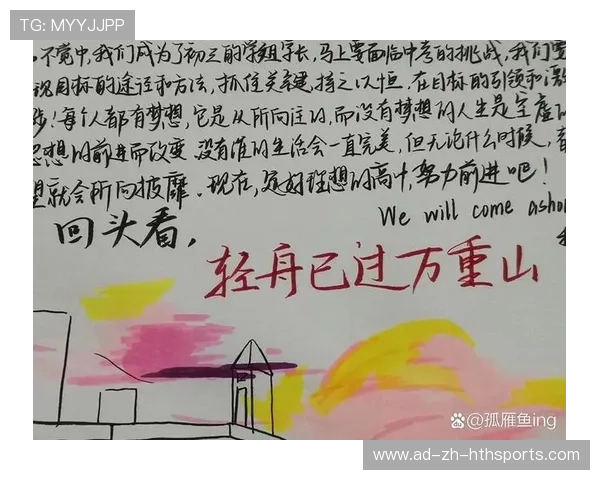 TG: MYYJJPP
不觉中，我们成为了初三的学姐学长，马上要面临中考的挑战，我们要
现目标的途径和方法，抓住关键，持之以恒，在目标的引领和激
步！每个人都有梦想，它是人所向往的，而没有梦想的人生是空虚的
思想的前进而改变，没有谁的生活会一直完美，但无论什么时候，看
望就会所向披靡。现在，定好理想的高计，努力前进吧！
We will come asho
回头看，
轻舟已过万重山
@孤雁鱼ing
www.ad-zh-hthsports.com